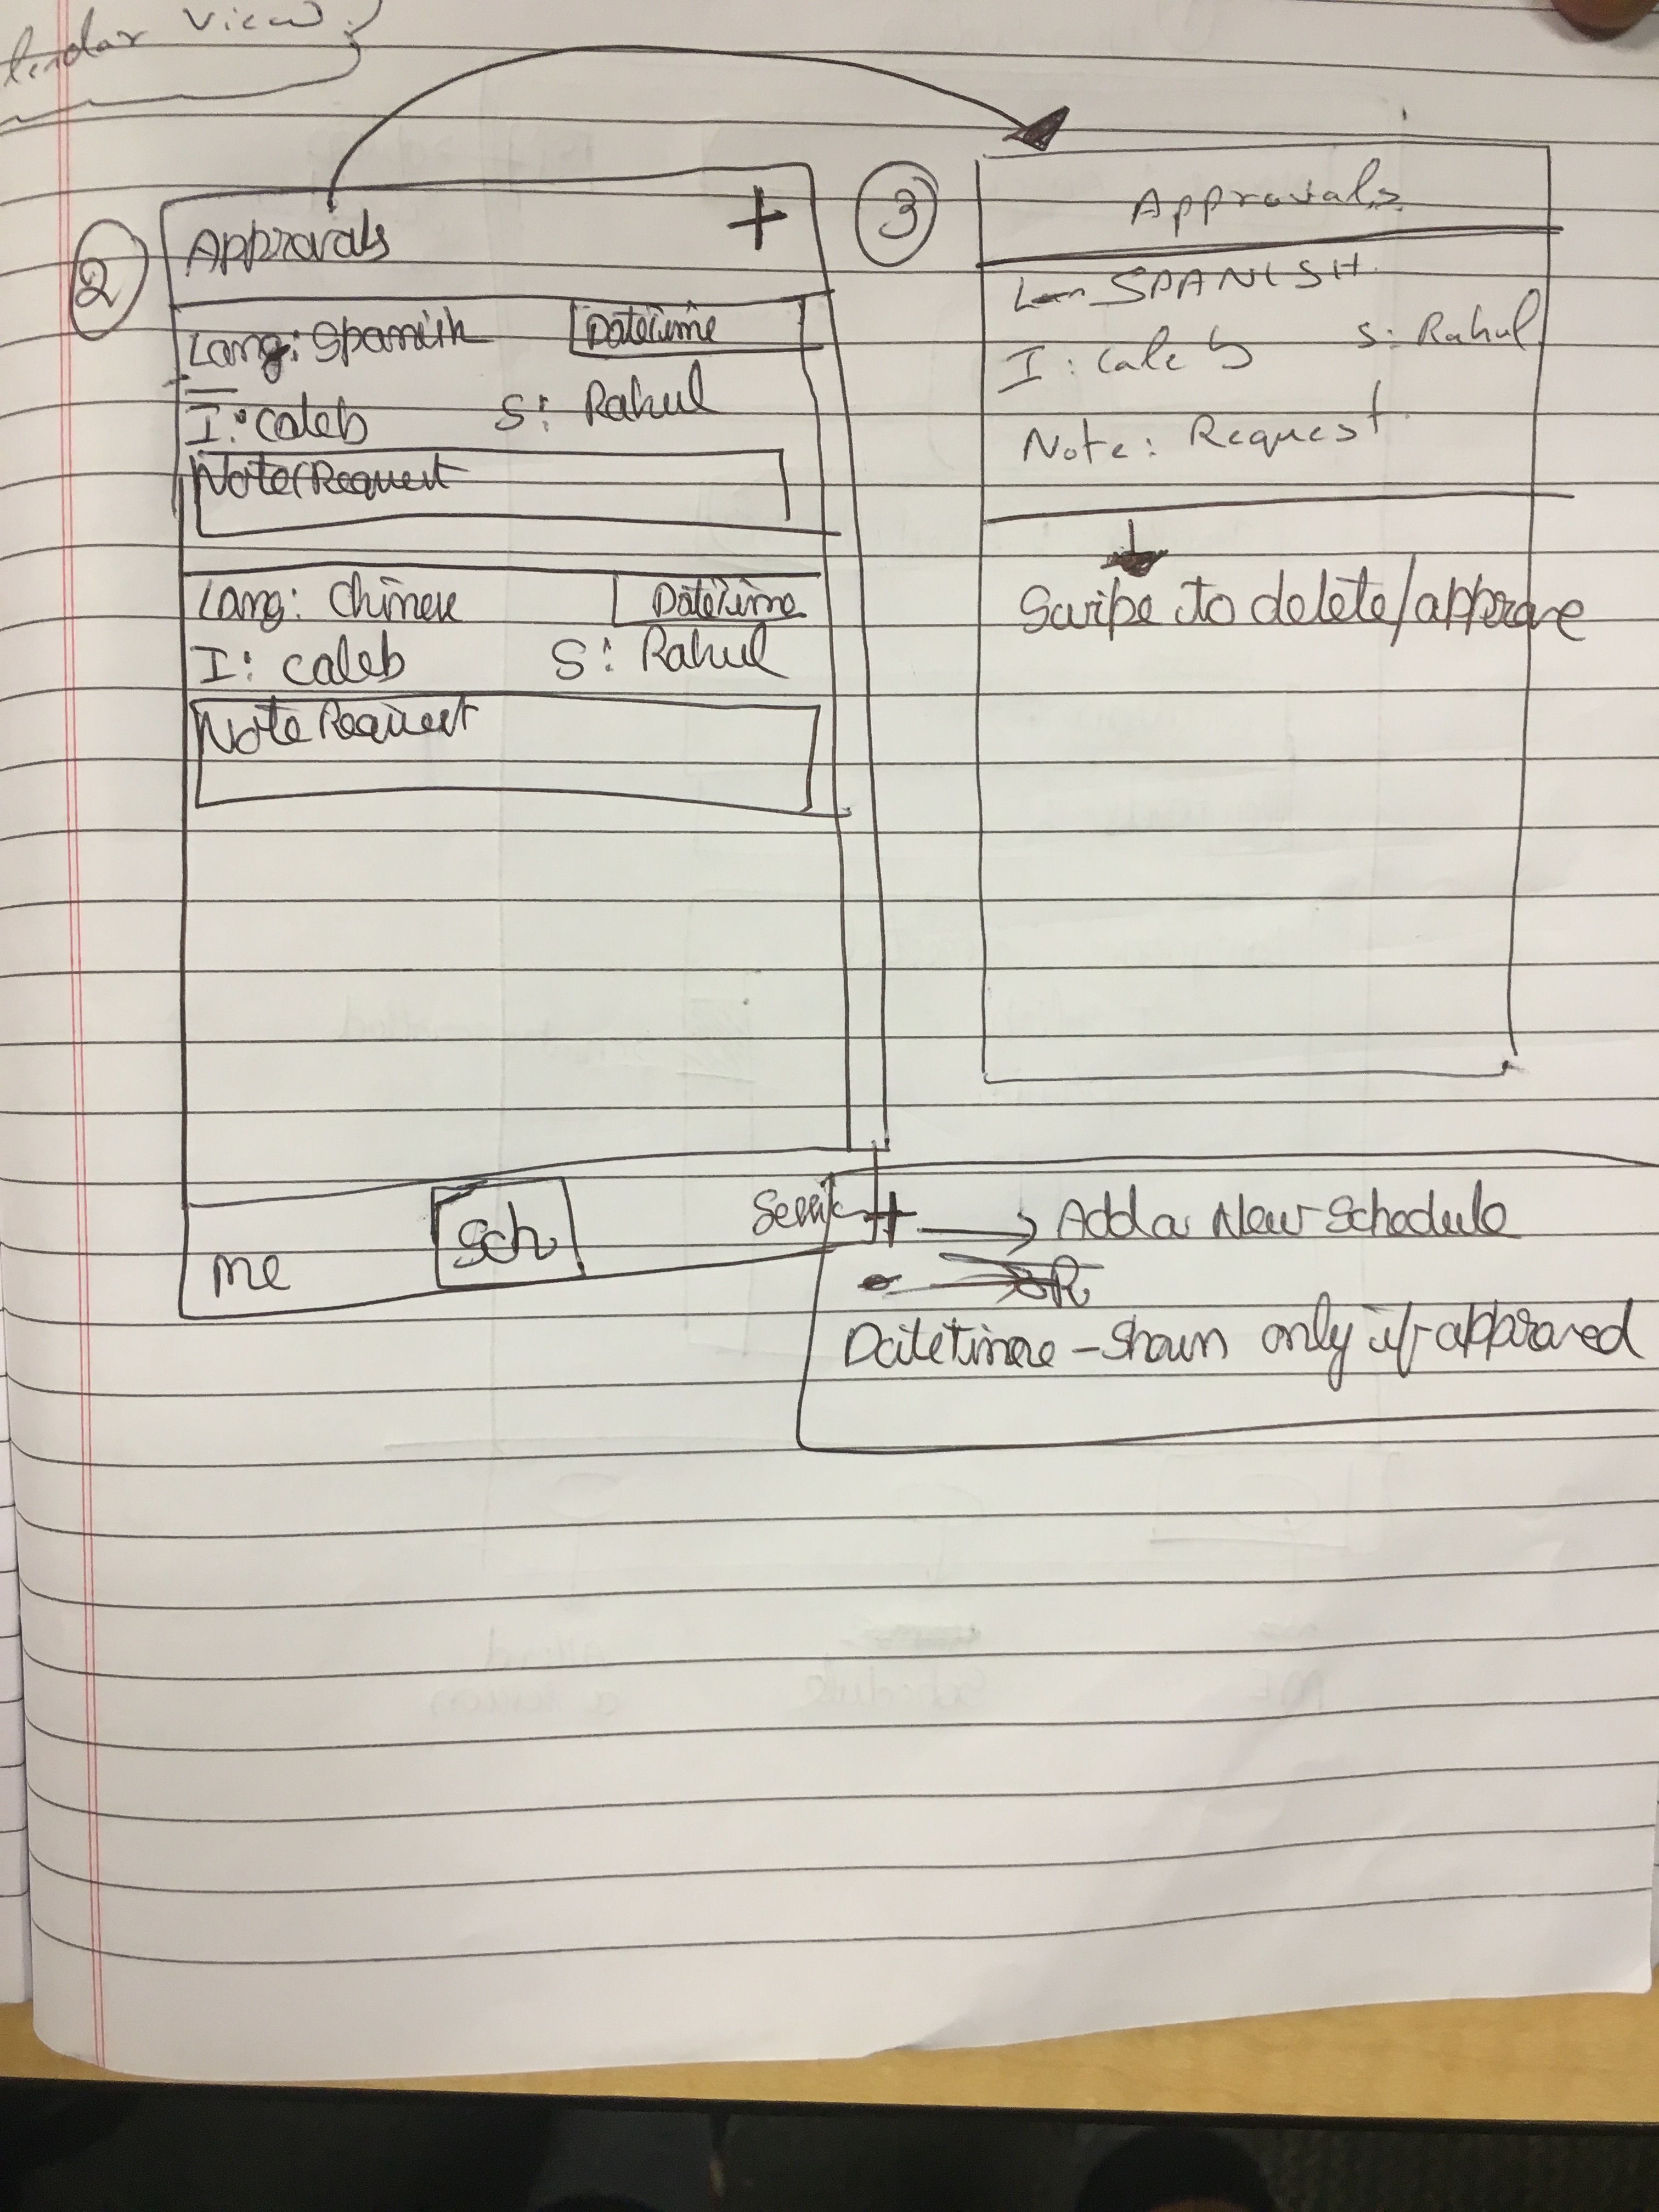 View
2
Approvals +
Lang: Spanish DateTime
I: Caleb S: Rahul
Note/Request
Lang: Chinese DateTime
I: Caleb S: Rahul
Note Request
me Sch
3
Approvals
SPANISH
I: Caleb S: Rahul
Note: Request
Swipe to delete/approve
+ → Add a New Schedule
Datetime - Shown only if approved